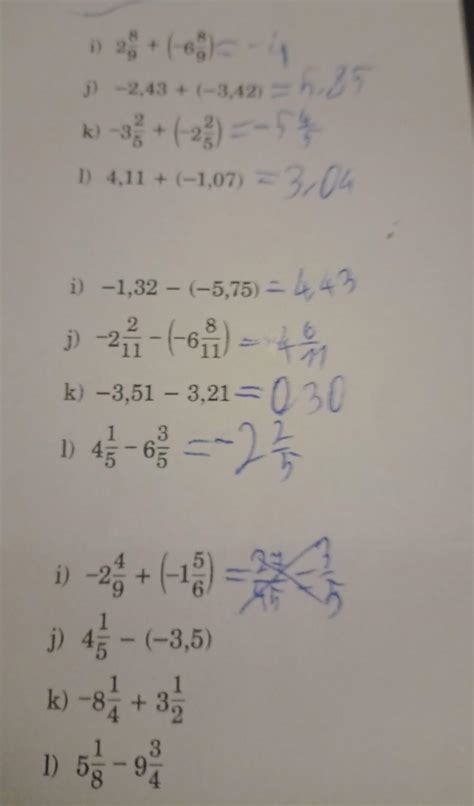 i) 2 8/9 + (−6 8/9) = −4
j) −2,43 + (−3,42) = 5,85
k) −3 2/5 + (−2 2/5) = −5 4/5
l) 4,11 + (−1,07) = 3,04
i) −1,32 − (−5,75) = 4,43
j) −2 2/11 − (−6 8/11) = 4 6/11
k) −3,51 − 3,21 = 0,30
l) 4 1/5 − 6 3/5 = −2 2/5
i) −2 4/9 + (−1 5/6) =
j) 4 1/5 − (−3,5)
k) −8 1/4 + 3 1/2
l) 5 1/8 − 9 3/4